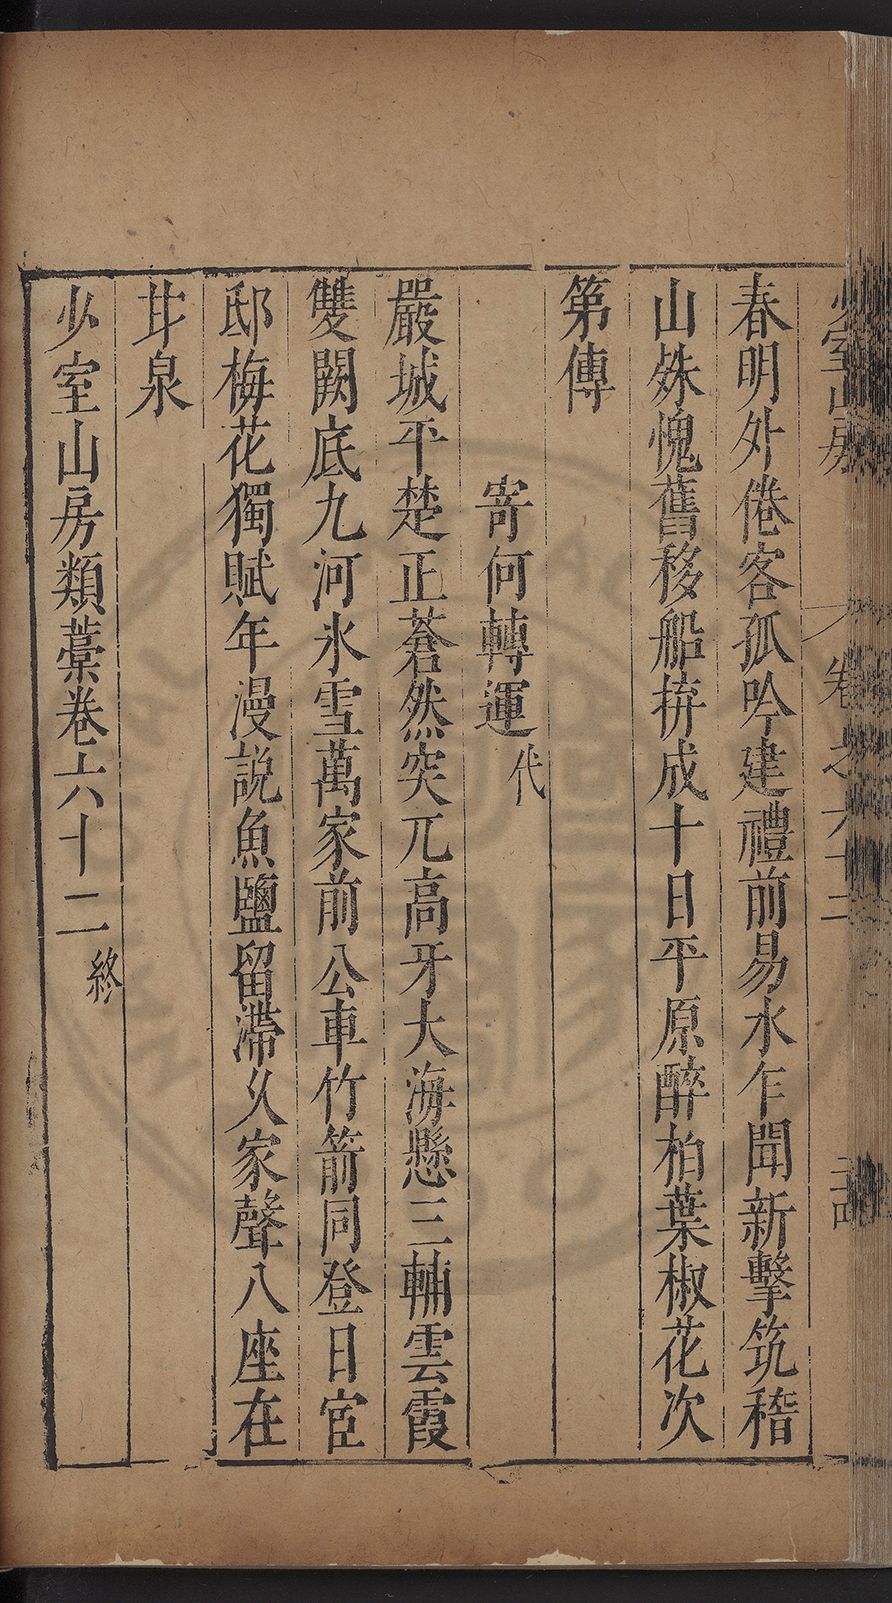 春明外倦客孤吟建禮前易水乍聞新擊筑稽
山殊愧舊移船拚成十日平原醉柏葉椒花次
第傳
寄何轉運代
嚴城平楚正蒼然突兀高牙大海懸三輔雲霞
雙闕底九河氷雪萬家前公車竹箭同登日宦
邸梅花獨賦年漫説魚鹽留滯乆家聲八座在
甘泉
少室山房類藁卷六十二終